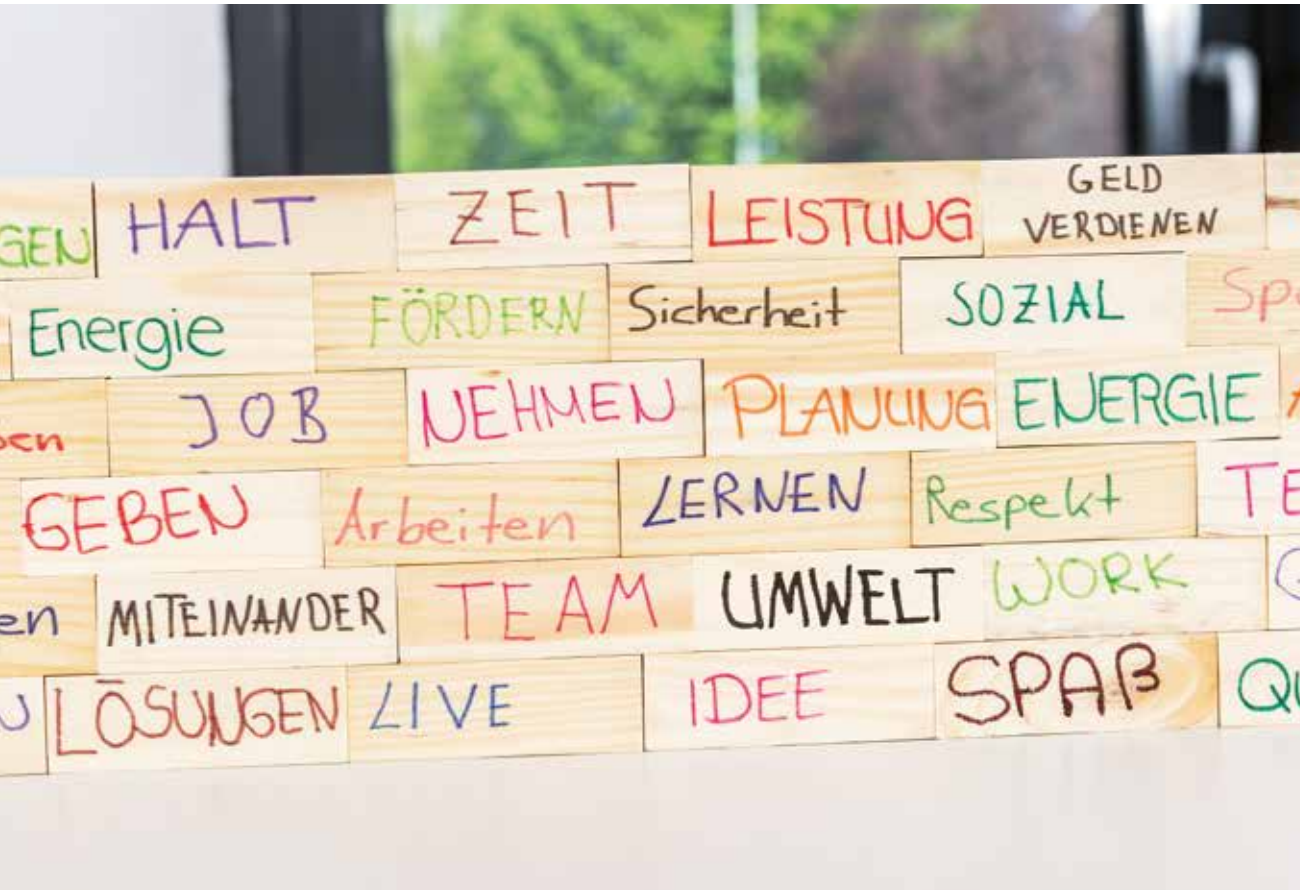 GEN HALT ZEIT LEISTUNG GELD
VERDIENEN
Energie FÖRDERN Sicherheit SOZIAL Spo
JOB NEHMEN PLANUNG ENERGIE
GEBEN Arbeiten LERNEN Respekt TE
en MITEINANDER TEAM UMWELT WORK
LÖSUNGEN LIVE IDEE SPAß QU